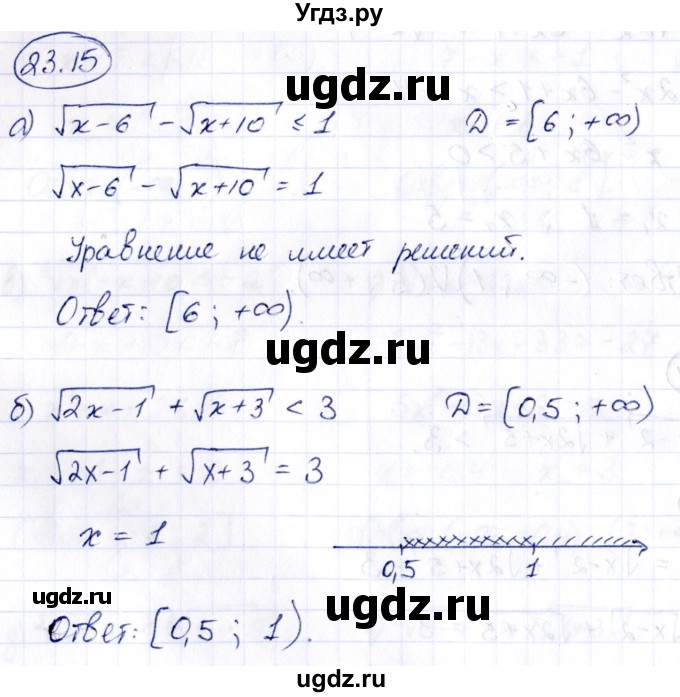 Угдз.ру
23.15
ugdz.ru
а) √(x-6) - √(x+10) ≤ 1 D = [6; +∞)
√(x-6) - √(x+10) = 1
Уравнение не имеет решений.
Ответ: [6; +∞).
ugdz.ru
б) √(2x-1) + √(x+3) < 3 D = [0,5; +∞)
ugdz.ru
√(2x-1) + √(x+3) = 3
x = 1
0,5 1
ugdz.ru
ugdz.ru
Ответ: [0,5; 1).
ugdz.ru